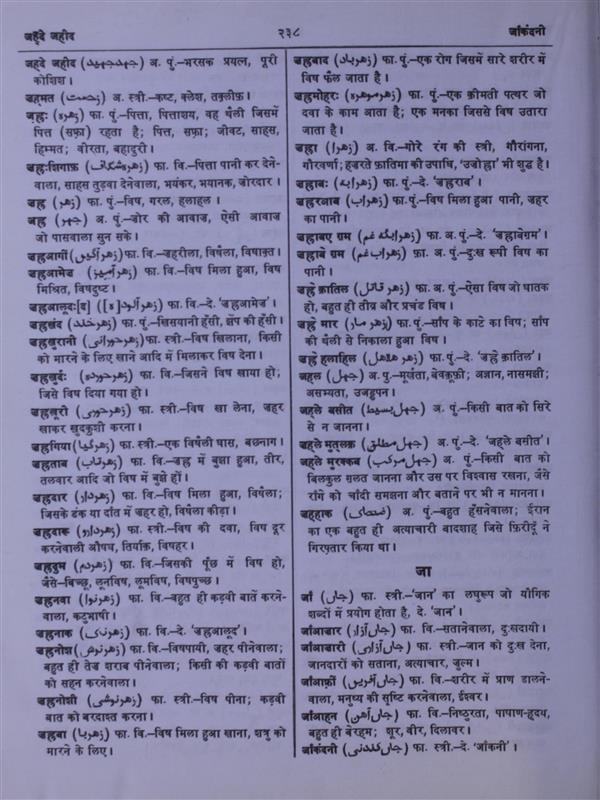 जहदे जहीद
२३८
जाँकंदनी
जहदे जहीद (جہد جہید) अ. पुं.–भरसक प्रयत्न, पूरी
कोशिश।
जहमत (زحمت) अ. स्त्री.–कष्ट, क्लेश, तक्लीफ़।
जह्रः (زهره) फा. पुं.–पित्ता, पित्ताशय, वह थैली जिसमें
पित्त (सफ़ा) रहता है; पित्त, सफ़ा; जीवट, साहस,
हिम्मत; वीरता, बहादुरी।
जह्रःशिगाफ़ (زهره شگاف) फा. वि.–पित्ता पानी कर देने-
वाला, साहस तुड़वा देनेवाला, भयंकर, भयानक, जोरदार।
जह्र (زهر) फा. पुं.–विष, गरल, हलाहल।
जह्र (جهر) अ. पुं.–ज़ोर की आवाज, ऐसी आवाज
जो पासवाला सुन सके।
जह्रआगीं (زهر آگیں) फा. वि.–जहरीला, विषैला, विषाक्त।
जह्रआमेज (زهر آمیز) फा. वि.–विष मिला हुआ, विष
मिश्रित, विषदुष्ट।
जह्रआलूदः[द] (زهر آلود[ه]) फा. वि.–दे. 'जह्रआमेज'।
जह्रखंद (زهر خند) फा. पुं.–खिसयानी हँसी, झेंप की हँसी।
जह्रखुरानी (زهر خورانی) फा. स्त्री.–विष खिलाना, किसी
को मारने के लिए खाने आदि में मिलाकर विष देना।
जह्रखुर्दः (زهر خورده) फा. वि.–जिसने विष खाया हो;
जिसे विष दिया गया हो।
जह्रखुरी (زهر خوری) फा. स्त्री.–विष खा लेना, जहर
खाकर खुदकुशी करना।
जह्रगिया (زهر گیا) फा. स्त्री.–एक विषैली घास, बछनाग।
जह्रताब (زهر تاب) फा. वि.–जह्र में बुझा हुआ, तीर,
तलवार आदि जो विष में बुझे हों।
जह्रदार (زهر دار) फा. वि.–विष मिला हुआ, विषैला;
जिसके डंक या दाँत में जहर हो, विषैला कीड़ा।
जह्रदारू (زهر دارو) फा. स्त्री.–विष की दवा, विष दूर
करनेवाली औषध, तिर्याक़, विषहर।
जह्रदुम (زهر دم) फा. वि.–जिसकी पूँछ में विष हो,
जैसे–बिच्छू, लूनविष, लूमविष, विषपुच्छ।
जह्रनवा (زهر نوا) फा. वि.–बहुत ही कड़वी बातें करने-
वाला, कटुभाषी।
जह्रनाक (زهر ناک) फा. वि.–दे. 'जह्रआलूद'।
जह्रनोश (زهر نوش) फा. वि.–विषपायी, जहर पीनेवाला;
बहुत ही तेज शराब पीनेवाला; किसी की कड़वी बातों
को सहन करनेवाला।
जह्रनोशी (زهر نوشی) फा. स्त्री.–विष पीना; कड़वी
बात को बरदाश्त करना।
जह्रबा (زهر با) फा. वि.–विष मिला हुआ खाना, शत्रु को
मारने के लिए।
जह्रबाद (زهر باد) फा. पुं.–एक रोग जिसमें सारे शरीर में
विष फैल जाता है।
जह्रमोहरः (زهر موهره) फा. पुं.–एक क़ीमती पत्थर जो
दवा के काम आता है; एक मनका जिससे विष उतारा
जाता है।
जह्रा (زهرا) अ. वि.–गोरे रंग की स्त्री, गौरांगना,
गौरवर्णा; हज़रते फ़ातिमा की उपाधि, 'उज़ोह्रा' भी शुद्ध है।
जह्राबः (زهرابه) फा. पुं.–दे. 'जह्राब'।
जहरआब (زهراب) फा. पुं.–विष मिला हुआ पानी, जहर
का पानी।
जह्राबए ग़म (زهرابۂ غم) फा. अ. पुं.–दे. 'जह्राबेग़म'।
जह्राबे ग़म (زهراب غم) फ़ा. अ. पुं.–दुःख रूपी विष का
पानी।
जह्रे क़ातिल (زهر قاتل) फा. अ. पुं.–ऐसा विष जो घातक
हो, बहुत ही तीव्र और प्रचंड विष।
जह्रे मार (زهر مار) फा. पुं.–साँप के काटे का विष; साँप
की थैली से निकाला हुआ विष।
जह्रे हलाहिल (زهر هلاهل) फा. पुं.–दे. 'जह्रे क़ातिल'।
जहल (جهل) अ. पु.–मूर्खता, बेवक़ूफ़ी; अज्ञान, नासमझी;
असभ्यता, उजड्डपन।
जहले बसीत (جهل بسیط) अ. पुं.–किसी बात को सिरे
से न जानना।
जहले मुतलक़ (جهل مطلق) अ. पुं.–दे. 'जहले बसीत'।
जहले मुरक्कब (جهل مرکب) अ. पुं.–किसी बात को
बिलकुल ग़लत जानना और उस पर विश्वास रखना, जैसे
राँगे को चाँदी समझना और बताने पर भी न मानना।
जहहाक (ضحاک) अ. पुं.–बहुत हँसनेवाला; ईरान
का एक बहुत ही अत्याचारी बादशाह जिसे फ़िरीदूँ ने
गिरफ़्तार किया था।
जा
जाँ (جاں) फा. स्त्री.–'जान' का लघुरूप जो यौगिक
शब्दों में प्रयोग होता है, दे. 'जान'।
जाँआज़ार (جاں آزار) फा. वि.–सतानेवाला, दुःखदायी।
जाँआज़ारी (جاں آزاری) फा. स्त्री.–जान को दुःख देना,
जानदारों को सताना, अत्याचार, जुल्म।
जाँआफ़्रीं (جاں آفریں) फा. वि.–शरीर में प्राण डालने-
वाला, मनुष्य की सृष्टि करनेवाला, ईश्वर।
जाँआहन (جاں آهن) फा. वि.–निष्ठुरता, पाषाण-हृदय,
बहुत ही बेरहम; शूर, वीर, दिलावर।
जाँकंदनी (جاں کندنی) फा. स्त्री.–दे. 'जाँकनी'।